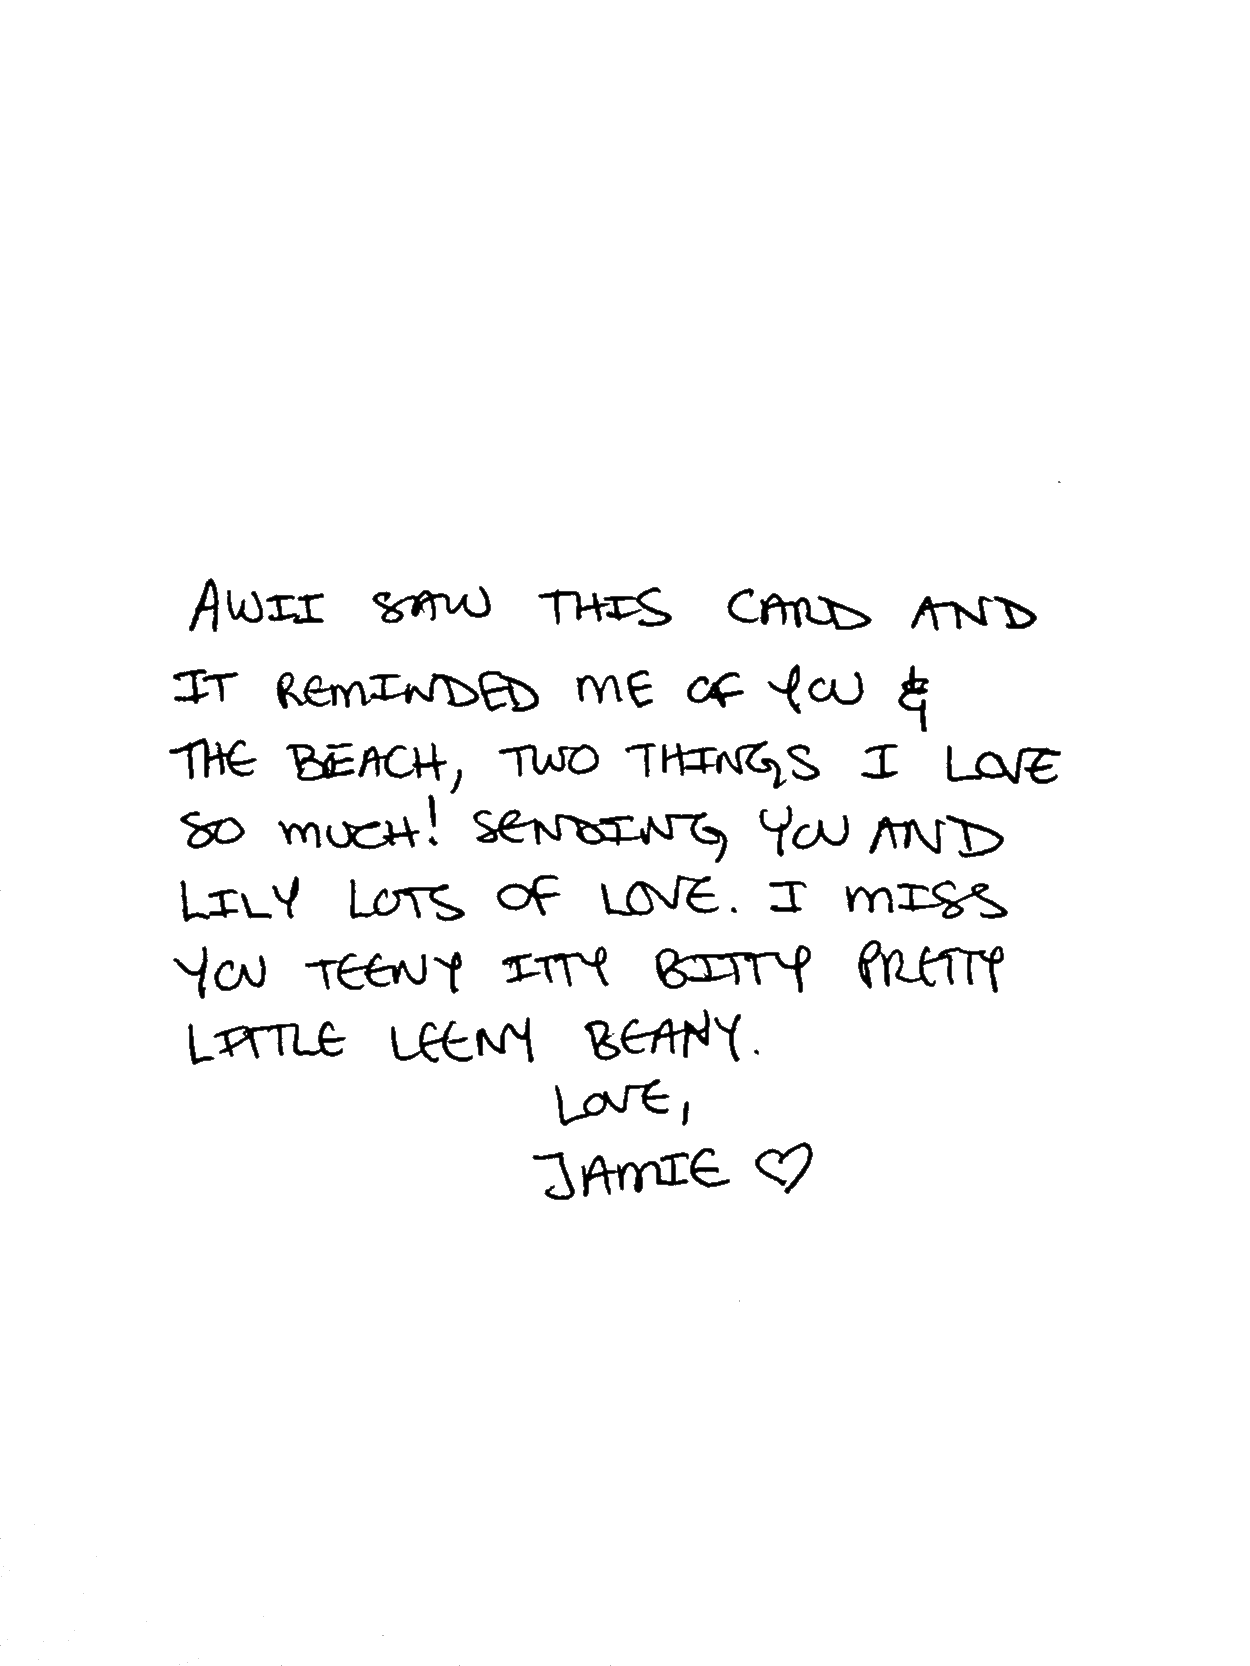 AWII SAW THIS CARD AND
IT REMINDED ME OF YOU &
THE BEACH, TWO THINGS I LOVE
SO MUCH! SENDING YOU AND
LILY LOTS OF LOVE. I MISS
YOU TEENY ITTY BITTY PRETTY
LITTLE LEENY BEANY.
LOVE,
JAMIE ♡